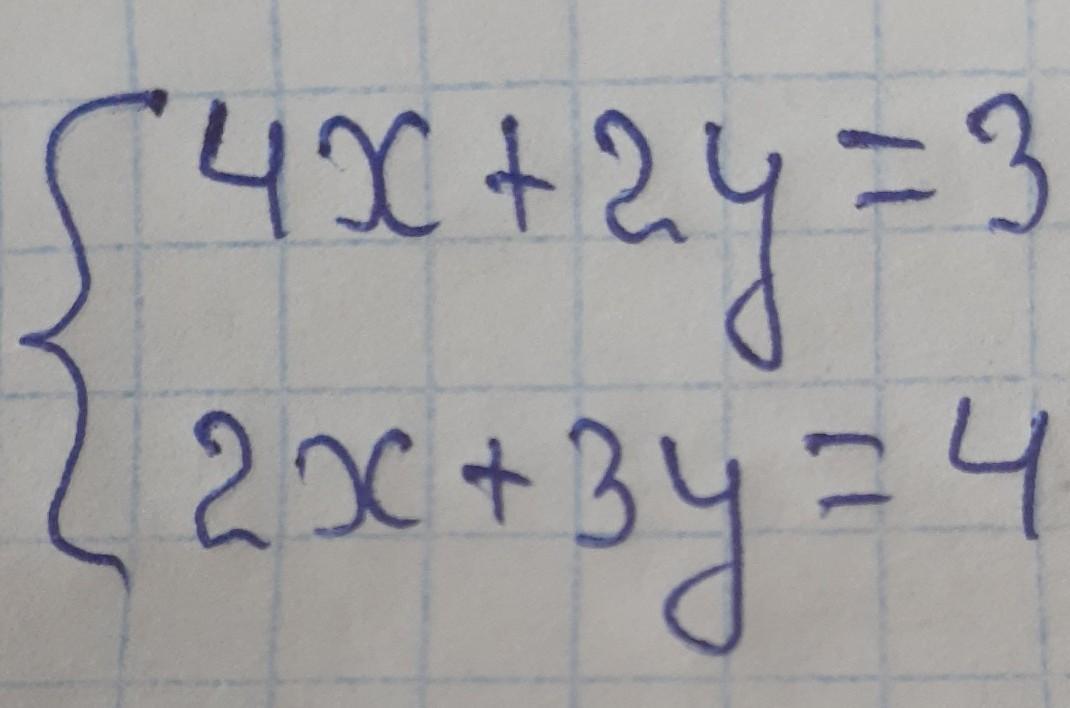 4x + 2y = 3
2x + 3y = 4